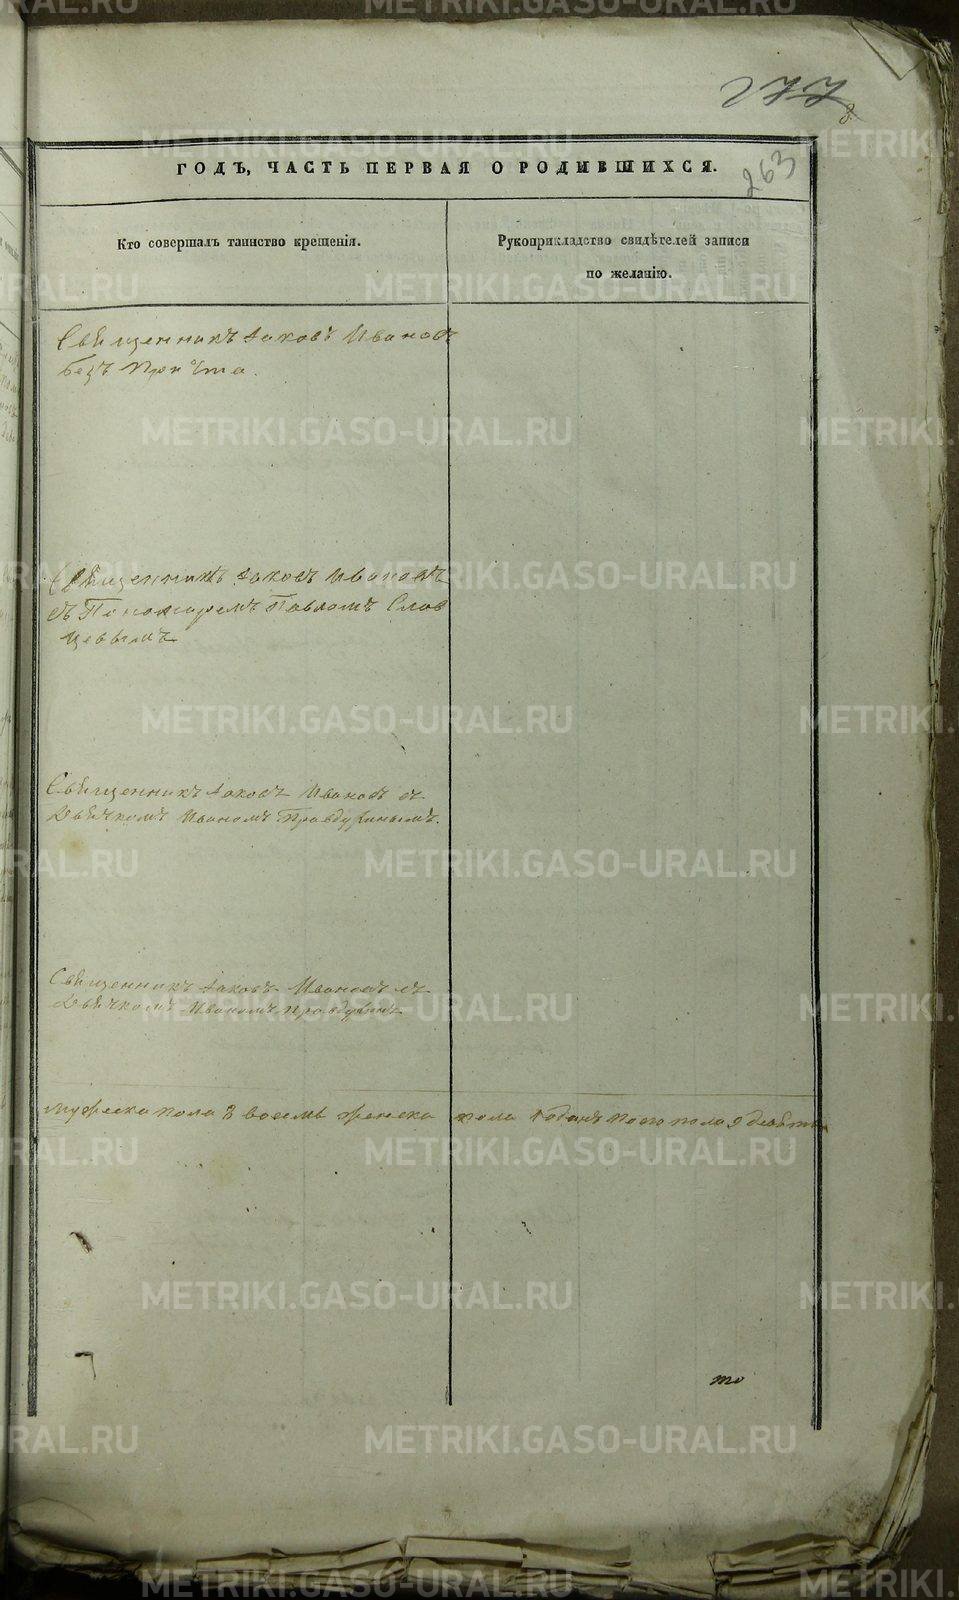 277
263
ГОДЪ, ЧАСТЬ ПЕРВАЯ О РОДИВШИХСЯ.
Кто совершалъ таинство крещенія.
Рукоприкладство свидѣтелей записи
по желанію.
Священникъ Іаковъ Ивановъ
безъ причта.
Священникъ Іаковъ Ивановъ
съ Пономаремъ Павломъ Слов
цевымъ
Священникъ Іаковъ Ивановъ съ
Дьячкомъ Иваномъ Правдухинымъ.
Священникъ Іаковъ Ивановъ съ
Дьячкомъ Иваномъ
мужеска пола 8 восемь женска пола 1 одинъ пола 9 девять
то
METRIKI.GASO-URAL.RU